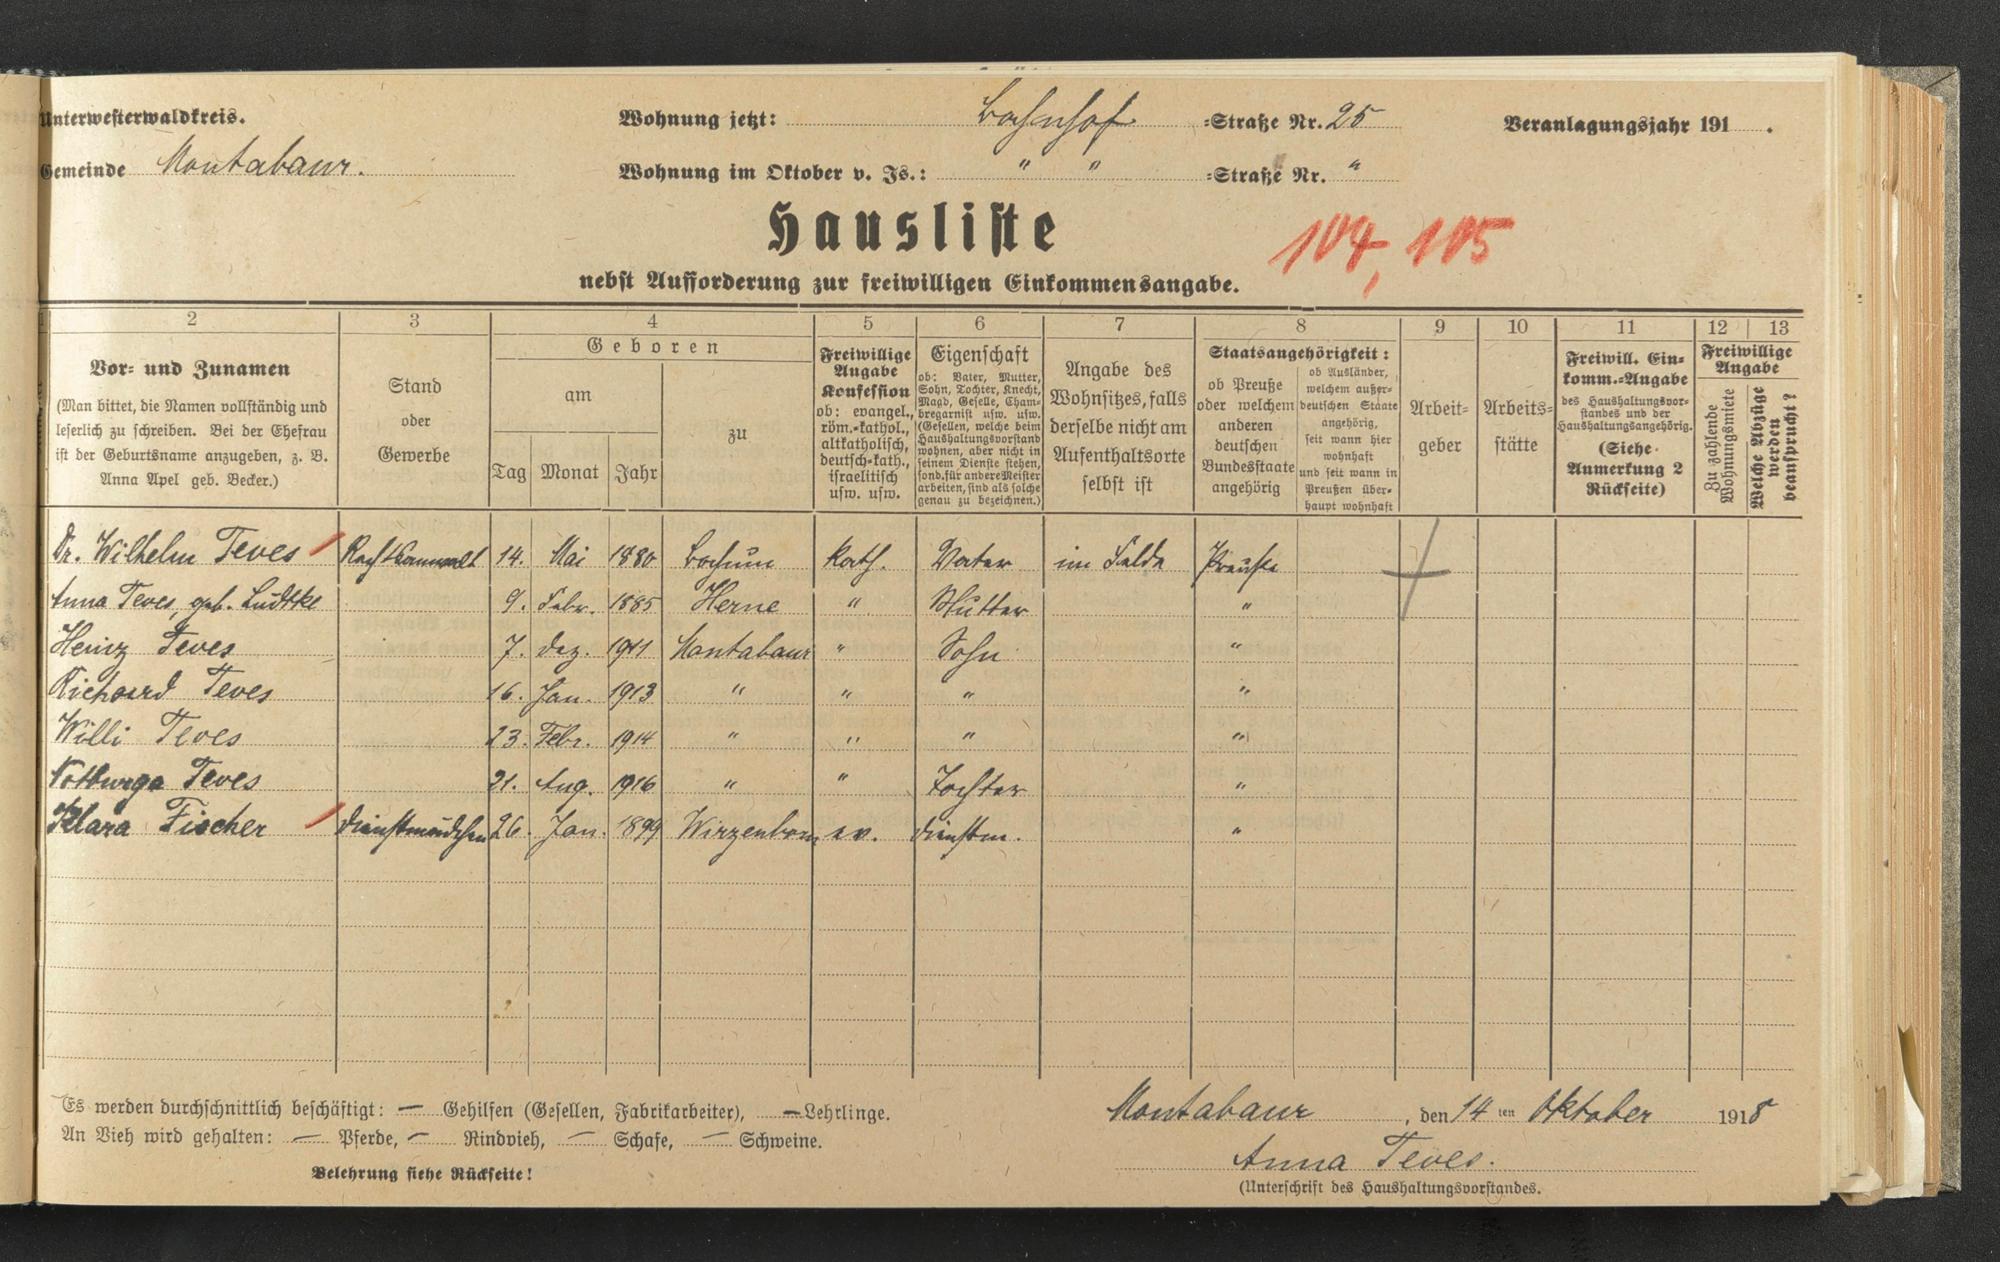 Unterwesterwaldkreis.
Wohnung jetzt: Bahnhof =Straße Nr. 25
Veranlagungsjahr 191 .
Gemeinde Montabaur.
Wohnung im Oktober v. Js.: " " =Straße Nr. "
Hausliste
104, 105
nebst Aufforderung zur freiwilligen Einkommensangabe.
2 3 4 5 6 7 8 9 10 11 12 13
Vor- und Zunamen
(Man bittet, die Namen vollständig und
leserlich zu schreiben. Bei der Ehefrau
ist der Geburtsname anzugeben, z. B.
Anna Apel geb. Becker.)
Stand
oder
Gewerbe
Geboren
am
Tag Monat Jahr
zu
Freiwillige
Angabe
Konfession
ob: evangel.,
röm.-kathol.,
altkatholisch,
deutsch-kath.,
israelitisch
usw. usw.
Eigenschaft
ob: Vater, Mutter,
Sohn, Tochter, Knecht,
Magd, Geselle, Cham-
bregarnist usw. usw.
(Gesellen, welche beim
Haushaltungsvorstand
wohnen, aber nicht in
seinem Dienste stehen,
sond. für andere Meister
arbeiten, sind als solche
genau zu bezeichnen.)
Angabe des
Wohnsitzes, falls
derselbe nicht am
Aufenthaltsorte
selbst ist
Staatsangehörigkeit:
ob Preuße
oder welchem
anderen
deutschen
Bundesstaate
angehörig
ob Ausländer,
welchem außer-
deutschen Staate
angehörig,
seit wann hier
wohnhaft
und seit wann in
Preußen über-
haupt wohnhaft
Arbeit-
geber
Arbeits-
stätte
Freiwill. Ein-
komm.-Angabe
des Haushaltungsvor-
standes und der
Haushaltungsangehörig.
(Siehe
Anmerkung 2
Rückseite)
Freiwillige
Angabe
Zu zahlende
Wohnungsmiete
Welche Abzüge
werden
beansprucht?
Dr. Wilhelm Teves Rechtsanwalt 14. Mai 1880 Bochum kath. Vater im Felde Preuße
Anna Teves, geb. Lüdtke 9. Febr. 1885 Herne " Mutter "
Heinz Teves 7. Dez. 1911 Montabaur " Sohn "
Richard Teves 16. Jan. 1913 " " " "
Willi Teves 23. Febr. 1914 " " " "
Notburga Teves 21. Aug. 1916 " " Tochter "
Klara Fischer Dienstmädchen 26. Jan. 1899 Wirzenborn ev. Dienstm. "
Es werden durchschnittlich beschäftigt: — Gehilfen (Gesellen, Fabrikarbeiter), — Lehrlinge.
An Vieh wird gehalten: — Pferde, — Rindvieh, — Schafe, — Schweine.
Belehrung siehe Rückseite!
Montabaur, den 14ten Oktober 1918
Anna Teves.
(Unterschrift des Haushaltungsvorstandes.